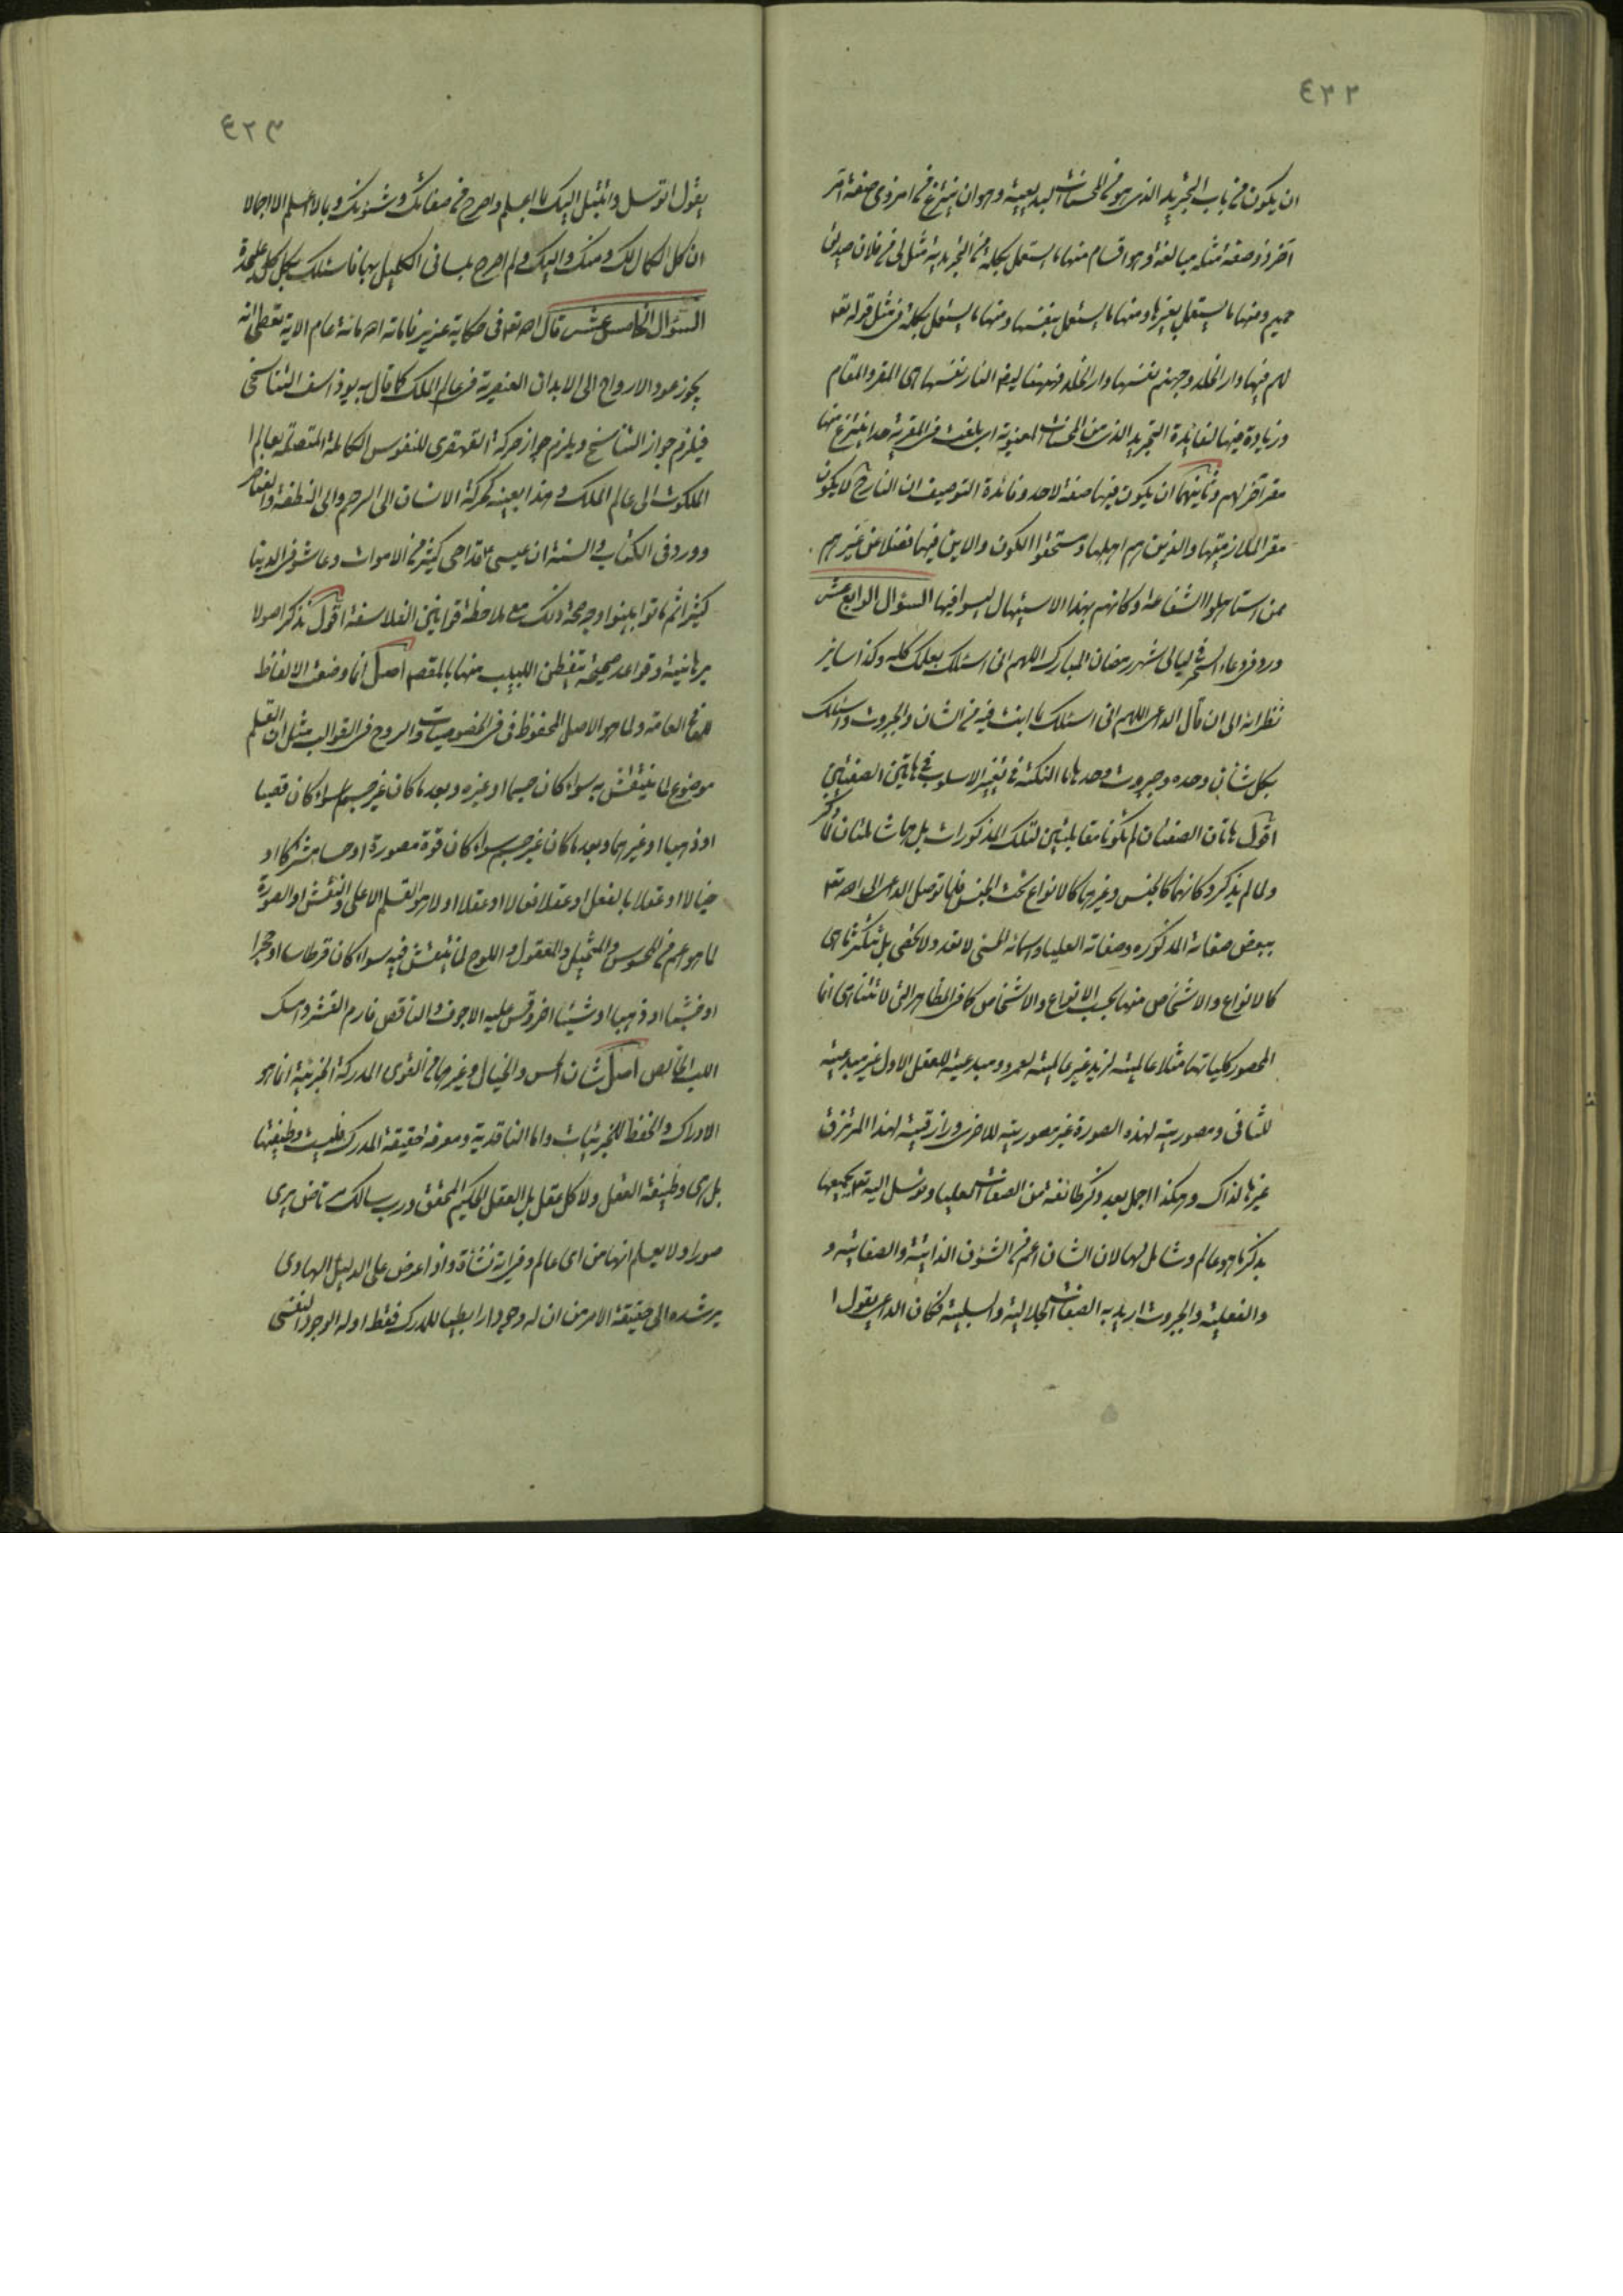 ٤٢٢
ان يكون من باب التجريد الذى هو من المحسنات البديعية وهو ان ينتزع من امر ذى صفة امر
آخر ذو صفة مثله مبالغة وهو اقسام منها ما يستعمل بكلمة من التجريدية مثل لى من فلان صديق
حميم ومنها ما يستعمل بغيرها ومنها ما يستعمل بنفسها ومنها ما يستعمل بكلمة فى مثل قوله تعـ
لهم فيها دار الخلد وجهنم نفسها دار الخلد فههنا ايضا النار نفسها هى المقر والمقام
وزيادة فيها لفايدة التجريد الذى من المحسنات المعنوية اى بلغت فى المقرية حدا ينتزع منها
مقر آخر لهم وثانيهما ان يكون فيها صفة لاحد وفائدة التوصيف ان النار لا يكون
مقر الملازميتها والذين هم اهلها ومستحقوا الكون والاين فيها فضلا عن غيرهم
ممن استاهلوا الشفاعة وكانهم بهذا الاستيهال ليسوا فيها السؤال الرابع عشر
ورد فى دعاء السحر فى ليالى شهر رمضان المبارك اللهم انى اسئلك بعلمك كله وكذا ساير
نظرائه الى ان قال الداعى اللهم انى اسئلك بما انت فيه من الشان والجبروت واسئلك
بكل شان وحده وجبروت وحدها ما النكتة فى تغيير الاسلوب فى هاتين الصفتين
اقول هاتان الصفتان لم تكونا مقابلتين لتلك المذكورات بل هما شاملتان لما ذكر
ولما لم يذكر وكانهما كالجنس وغيرهما كالانواع تحت الجنس فلما توصل الداعى الى الله تعـ
ببعض صفاته المذكوره وصفاته العليا واسمائه الحسنى لا تعد ولا تحصى بل تتكثر ما هى
كالانواع والاشخاص منها بحسب الانواع والاشخاص كما فى المظاهر التى لا تتناهى انما
المحصور كلياتها مثلا عالمية لزيد غير عالمية لعمرو ومبدعية للعقل الاول غير مبدعية
للثانى ومصورية لهذه الصورة غير مصورية للاخرى ورازقية لهذا المرتزق
غيرها لذاك وهكذا اجمل بعد ذكر طائفة من الصفات العليا وتوسل اليه تعـ بجميعها
بذكر ما هو عام وشامل لها لان الشان اعم من الشؤن الذاتية والصفاتية و
والفعلية والجبروت اريد به الصفات الجلالية والسلبية فكان الداعى يقول ا
٤٢٣
يقول اتوسل وابتهل اليك بما اعلم واصرح من صفاتك وشئونك وبما لا اعلم الا اجمالا
ان كل الكمال لك ومنك واليك ولم اصرح بلسانى الكليل بها فاسئلك بكل كل عليحدة
السؤال الخامس عشر قال الله تعـ فى حكاية عزير فاماته الله مائة عام الاية تعطى انه
يجوز عود الارواح الى الابدان العنصرية فى عالم الملك كما قال به يوذاسف التناسخى
فيلزم جواز التناسخ ويلزم جواز حركة القهقرى للنفوس الكاملة المتصلة بعالم ا
الملكوت الى عالم الملك وهذا بعينه كحركة الانسان الى الرحم والى النطفة والعناصر
وورد فى الكتاب والسنة ان عيسى ع قد احى كثير من الاموات وعاشو فى الدنيا
كثيرا ثم ماتوا بينوا وجه صحة ذلك مع ملاحظة قوانين الفلاسفة اقول نذكر اصولا
برهانية وقواعد صحيحة يتفطن اللبيب منها بالمقصد اصل انما وضعت الالفاظ
للمعانى العامة ولما هو الاصل المحفوظ فى الخصوصيات والروح فى القوالب مثل ان القلم
موضوع لما ينتقش به سواء كان جسما او غيره وبعد ما كان غير جسم سواء كان قصبا
او ذهبا او غيرهما وبعد ما كان غير جسم سواء كان قوة مصورة او حسا مشتركا او
خيالا او عقلا بالفعل او عقلا فعالا او عقلا اولا هو القلم الاعلى والنقش او الصورة
لما هو اعم من المحسوس والمتخيل والمعقول واللوح لما ينتقش فيه سواء كان قرطاسا او حجرا
او خشبا او ذهبا او شيئا اخر وقس عليه الاجوف والناقص فارم القشر وامسك
اللب الخالص اصل شان الحس والخيال وغيرهما من القوى المدركة الجزئية انما هو
الادراك والحفظ للجزئيات واما الناقدية ومعرفة حقيقة المدرك فليست وظيفتها
بل هى وظيفة العقل ولا كل عقل بل العقل الحكيم المحقق ورب سالك مرتاض يرى
صورا ولا يعلم انها من اى عالم وفى اية نشأة واذا عرض على الدليل الهادى
يرشده الى حقيقة الامر من ان له وجودا رابطيا للمدرك فقط او له الوجود النفسى